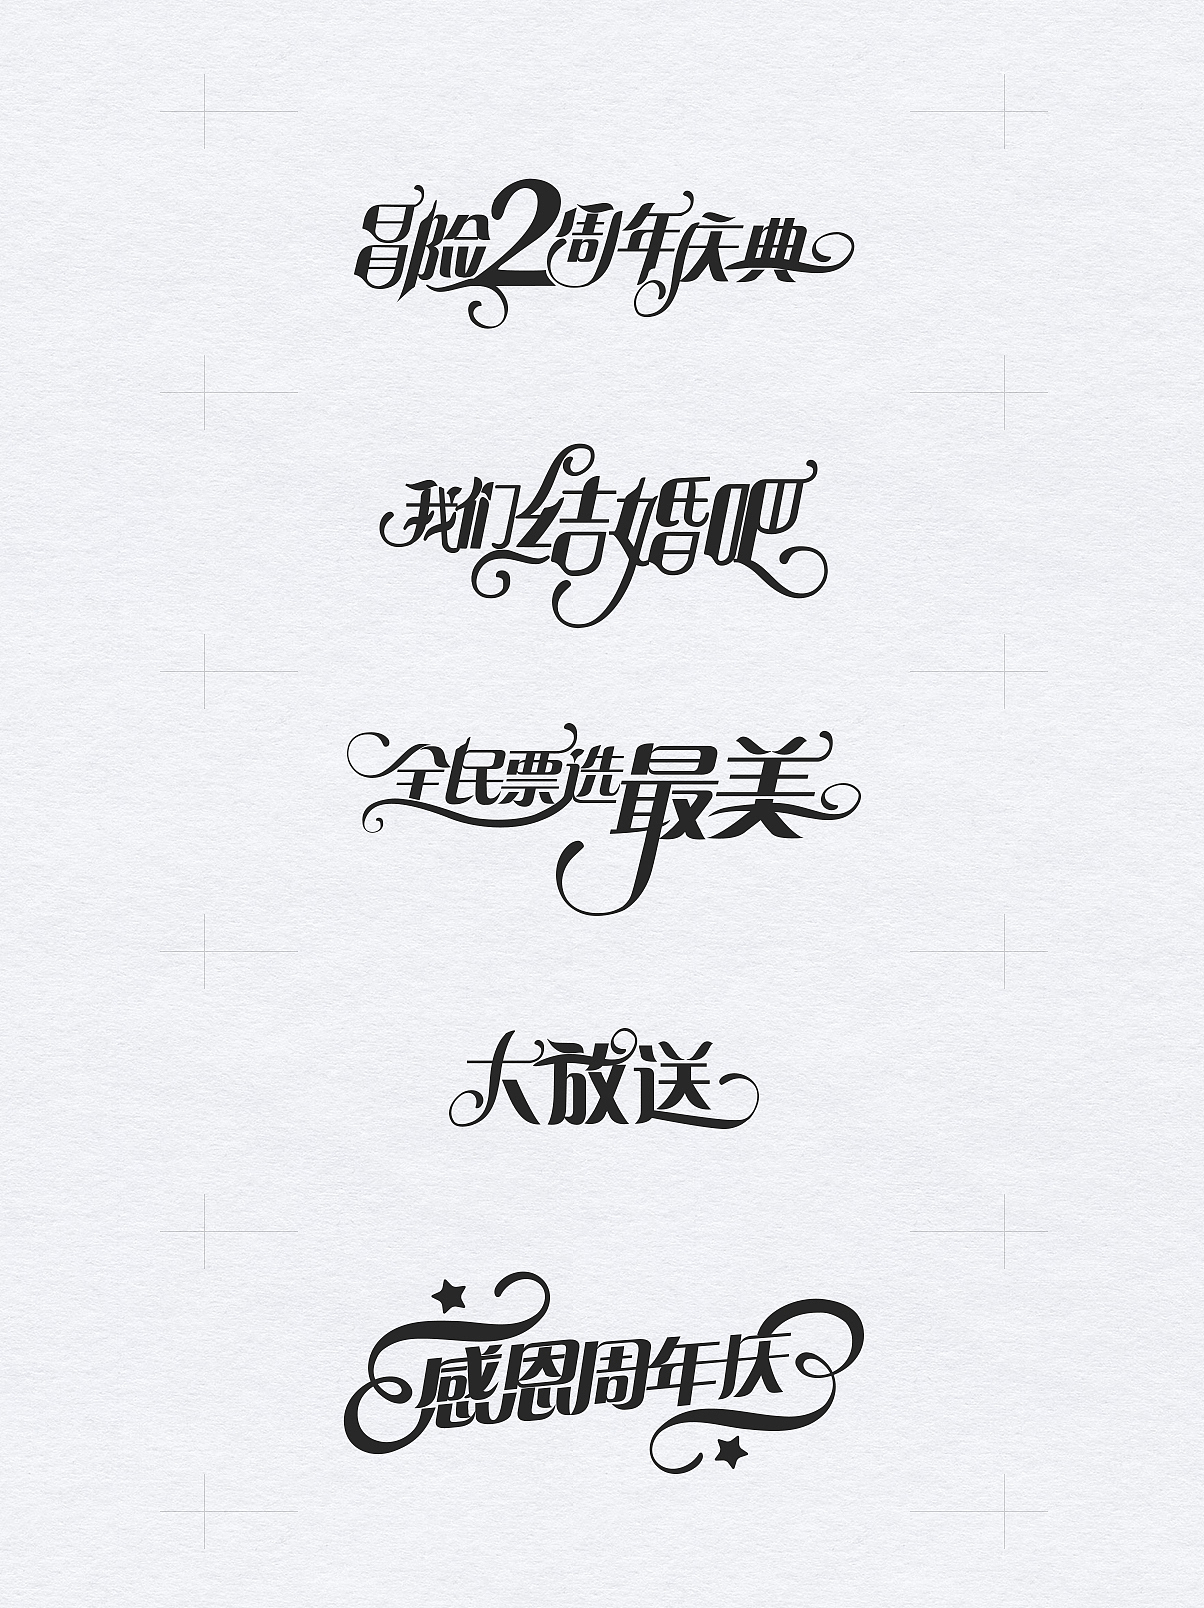 冒险2周年庆典
我们结婚吧
全民票选最美
大放送
感恩周年庆